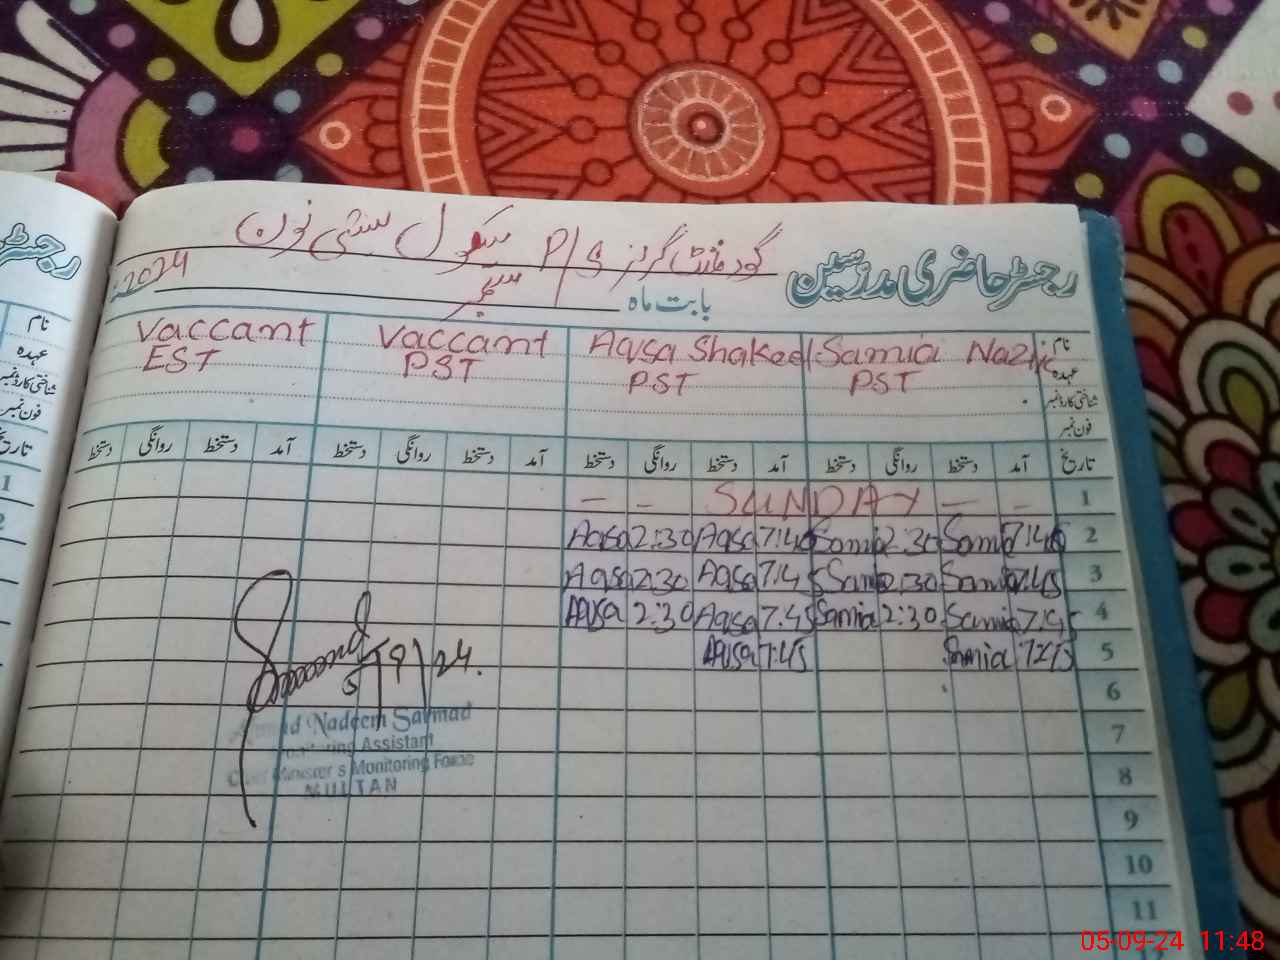 رجسٹر حاضری مدرسین
گورنمنٹ گرلز P/S سکول سٹی نون
بابت ماہ ستمبر 2024
نام Samia Nazir Aqsa Shakeel Vaccant Vaccant
عہدہ PST PST PST EST
شناختی کارڈ نمبر
فون نمبر
تاریخ آمد دستخط روانگی دستخط آمد دستخط روانگی دستخط آمد دستخط روانگی دستخط آمد دستخط روانگی دستخط
1 - - SUNDAY - -
2 7:45 Samia 2:30 Samia 7:45 Aqsa 2:30 Aqsa
3 7:45 Samia 2:30 Samia 7:45 Aqsa 2:30 Aqsa
4 7:45 Samia 2:30 Samia 7:45 Aqsa 2:30 Aqsa
5 7:45 Samia 7:45 Aqsa
6
7
8
9
10
11
5/9/24.
Nadeem Sarmad
Monitoring Assistant
Chief Minister's Monitoring Force
MULTAN
نام
عہدہ
شناختی کارڈ نمبر
فون نمبر
1
2
05-09-24 11:48